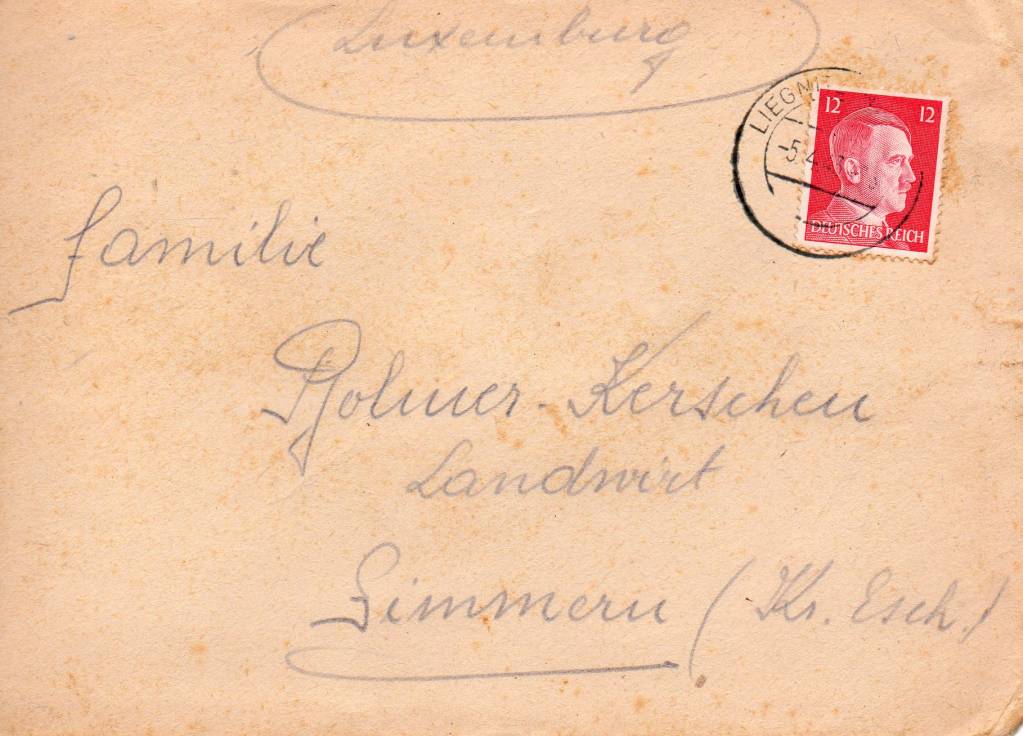 Luxemburg
LIEGNITZ
-5.4.
12 12
DEUTSCHES REICH
Familie
Kerschen
Landwirt
Simmern (Kr. Esch.)